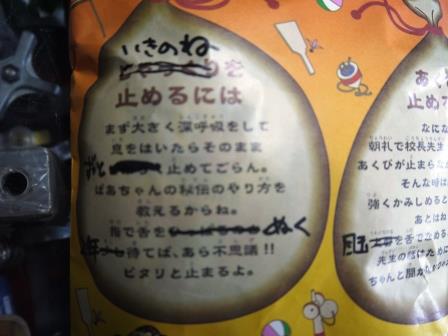 いきのね
りを
止めるには
まず大きく深呼吸をして
息をはいたらそのまま
止めてごらん。
ばあちゃんの秘伝のやり方を
教えるからね。
指で舌を ぬく
年 待てば、あら不思議!!
ピタリと止まるよ。
あく
止めた
なにな
朝礼で校長先生
あくびが止まらな
そんな時は
強くかみしめると
あとはね
目玉を舌でなめる
先生の
ちゃんと聞か